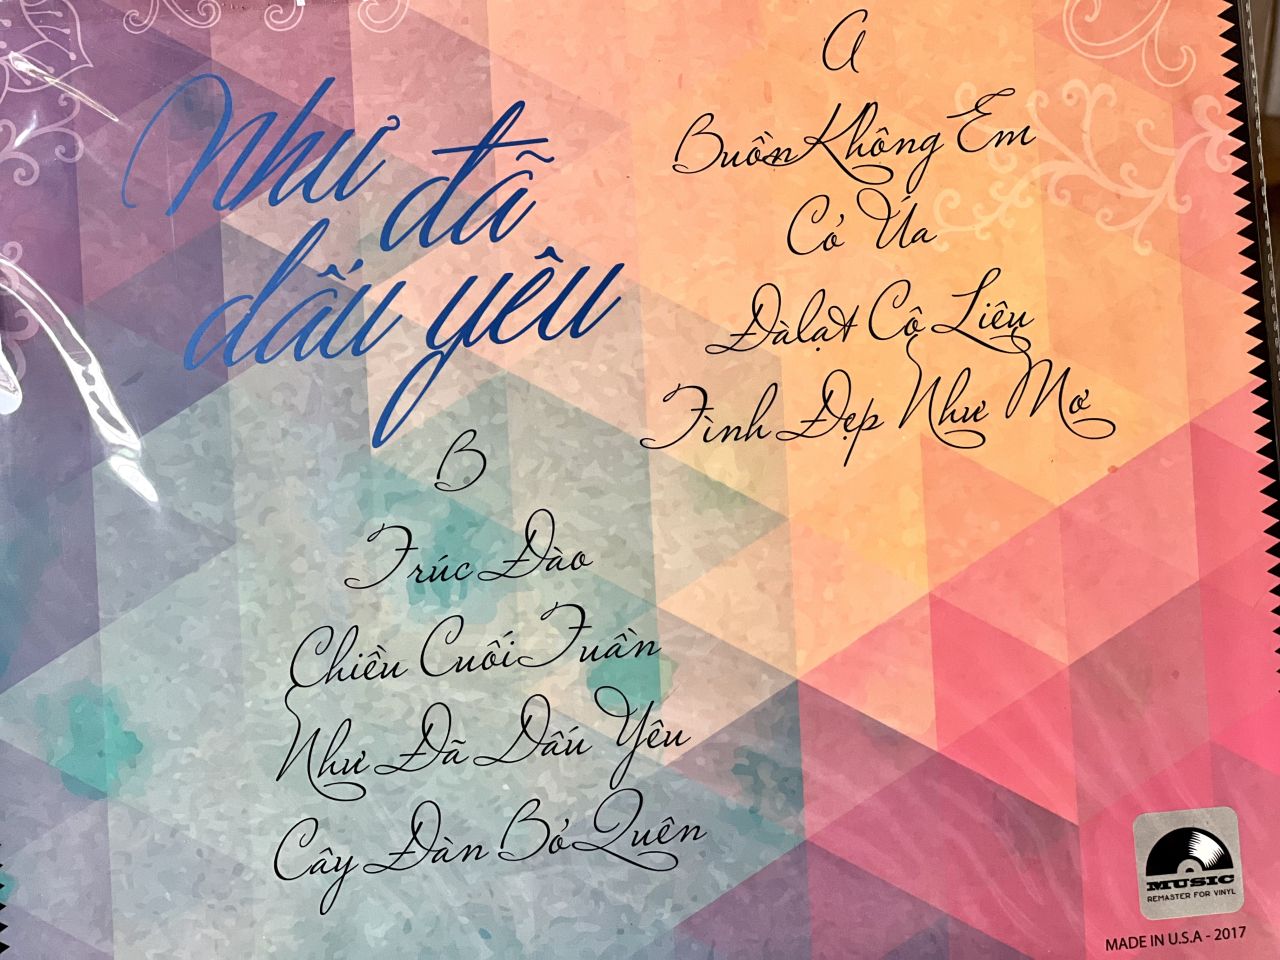 Như đã
dấu yêu
A
Buồn Không Em
Cỏ Úa
Đàlạt Cô Liêu
Tình Đẹp Như Mơ
B
Trúc Đào
Chiều Cuối Tuần
Như Đã Dấu Yêu
Cây Đàn Bỏ Quên
MUSIC
REMASTER FOR VINYL
MADE IN U.S.A - 2017